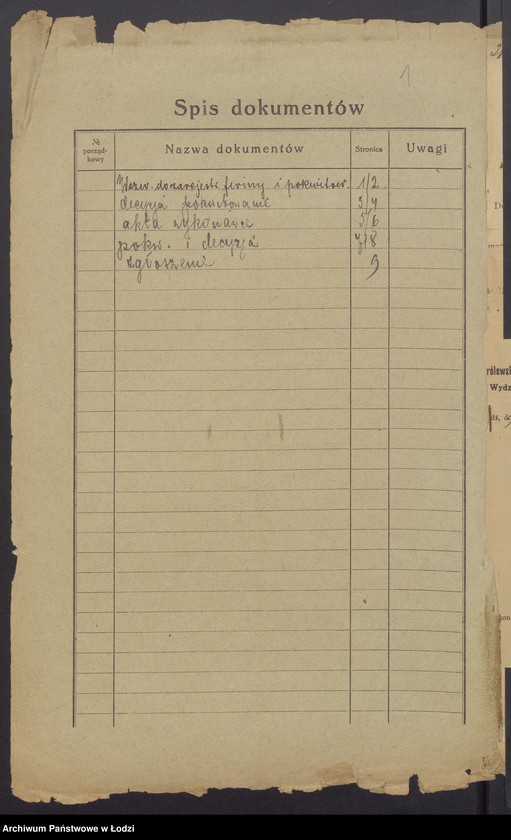 1
Spis dokumentów
№ porząd-kowy Nazwa dokumentów Stronica Uwagi
Wezw. do zarejestr. firmy i pokwitow. 1/2
decyzja pokwitowanie 3/4
akta wykonawcze 5/6
pokw. i decyzja 7/8
zgłoszenie 9
Wydz
Archiwum Państwowe w Łodzi